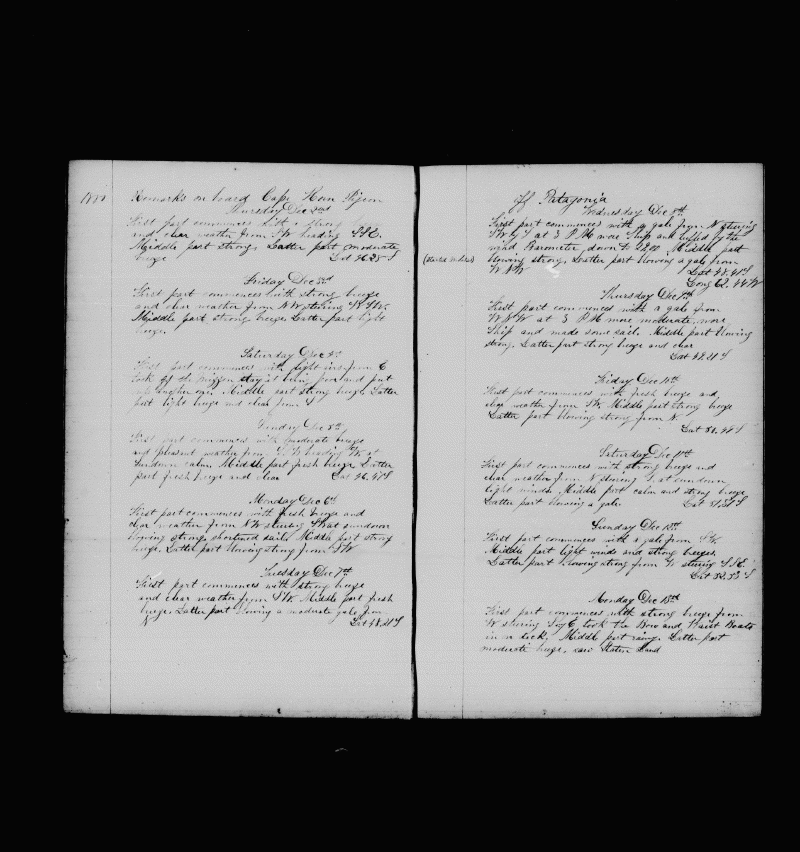 Remarks on board Cape Horn Pigeon
Thursday Dec 2nd
First part commences with a strong
and clear weather from SW heading SSE.
Middle part strong. Latter part moderate
breeze Lat 46.38 S
Friday Dec 3rd
First part commences with strong breeze
and clear weather from NW steering
Middle part strong breeze. Latter part light
breeze.
Saturday Dec 4th
First part commences with light airs from E
took off the mizzen stay it being poor and put
up another one. Middle part strong breeze. Latter
part light breeze and clear from S
Sunday Dec 5th
First part commences with moderate breeze
and pleasant weather from heading W at
sundown calm. Middle part fresh breeze. Latter
part fresh breeze and clear Lat 46.47 S
Monday Dec 6th
First part commences with fresh breeze and
clear weather from NW steering at sundown
blowing strong, shortened sail. Middle part strong
breeze. Latter part blowing strong from SW
Tuesday Dec 7th
First part commences with strong breeze
and clear weather from SW. Middle part fresh
breeze. Latter part blowing a moderate gale from
N Lat 48.21 S
Off Patagonia
Wednesday Dec 8th
First part commences with a gale from N steering
SW by S at 3 P.M. wore ship and by the
wind Barometer down to Middle part
blowing strong. Latter part blowing a gale from
WNW Lat 48.41 S
Long 62.44 W
Thursday Dec 9th
First part commences with a gale from
WNW at 3 P.M. more moderate, wore
Ship and made some sail. Middle part blowing
strong. Latter part strong breeze and clear
Friday Dec 10th
First part commences with fresh breeze and
clear weather from SW. Middle part strong breeze
Latter part blowing strong from N.
Lat 50.44 S
Saturday Dec 11th
First part commences with strong breeze and
clear weather from N steering S. at sundown
light winds. Middle part calm and strong breeze
Latter part blowing a gale.
Sunday Dec 12th
First part commences with a gale from SW.
Middle part light winds and strong breezes.
Latter part blowing strong from W steering SSE.
Lat 52.52 S
Monday Dec 13th
First part commences with strong breeze from
W steering S by E took the Bow and Waist Boats
in on deck. Middle part rainy. Latter part
moderate breeze. saw Staten Land